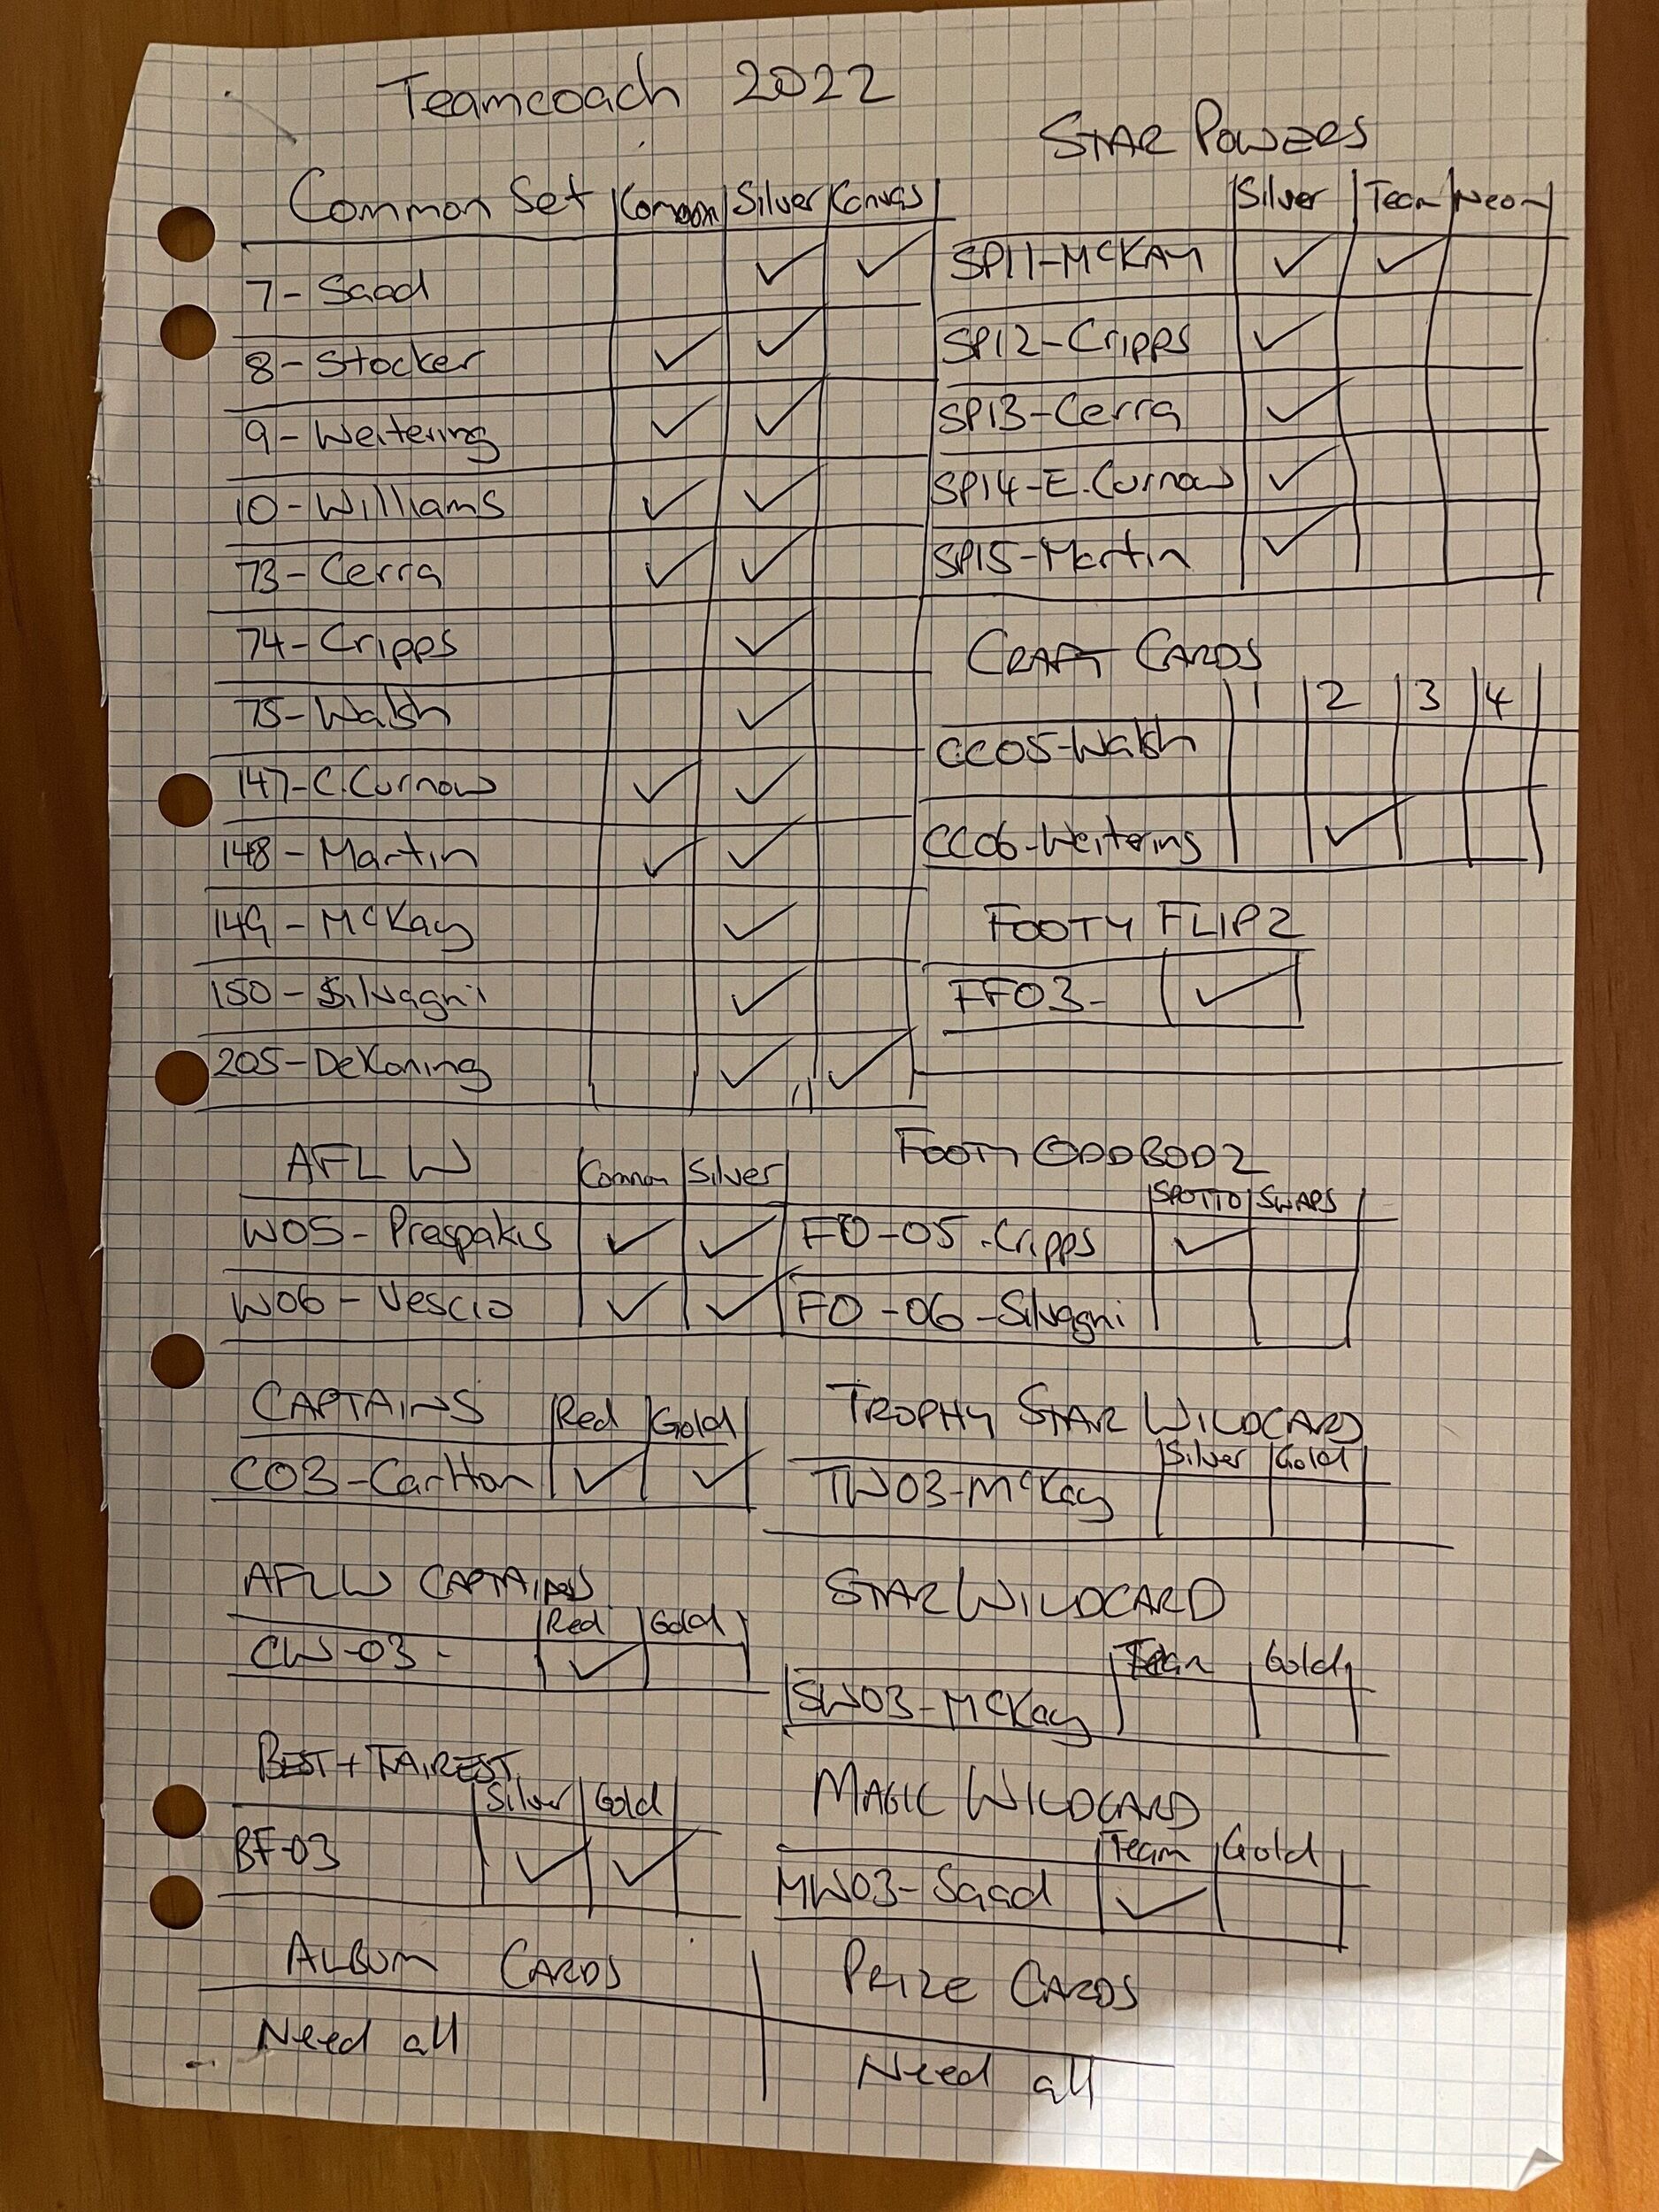 Teamcoach 2022
Common Set Common Silver Canvas
7 - Saad ✓ ✓
8 - Stocker ✓ ✓
9 - Weitering ✓ ✓
10 - Williams ✓ ✓
73 - Cerra ✓ ✓
74 - Cripps ✓
75 - Walsh ✓
147 - C. Curnow ✓ ✓
148 - Martin ✓ ✓
149 - McKay ✓
150 - Silvagni ✓
205 - DeKoning ✓ ✓
STAR POWERS
Silver Team Neon
SP11 - McKAY ✓ ✓
SP12 - Cripps ✓
SP13 - Cerra ✓
SP14 - E. Curnow ✓
SP15 - Martin ✓
CRAFT CARDS
1 2 3 4
CC05 - Walsh
CC06 - Weitering ✓
FOOTY FLIPZ
FF03 - ✓
AFLW Common Silver
W05 - Prespakis ✓ ✓
W06 - Vescio ✓ ✓
FOOTY ODDBODZ
SPOTTO SWAPS
FO - 05 - Cripps ✓
FO - 06 - Silvagni
CAPTAINS Red Gold
C03 - Carlton ✓ ✓
TROPHY STAR WILDCARD
Silver Gold
TW03 - McKay
AFLW CAPTAINS
Red Gold
CW-03 - ✓
STAR WILDCARD
Team Gold
SW03 - McKay
BEST + FAIREST
Silver Gold
BF-03 ✓ ✓
MAGIC WILDCARD
Team Gold
MW03 - Saad ✓
ALBUM CARDS
Need all
PRIZE CARDS
Need all